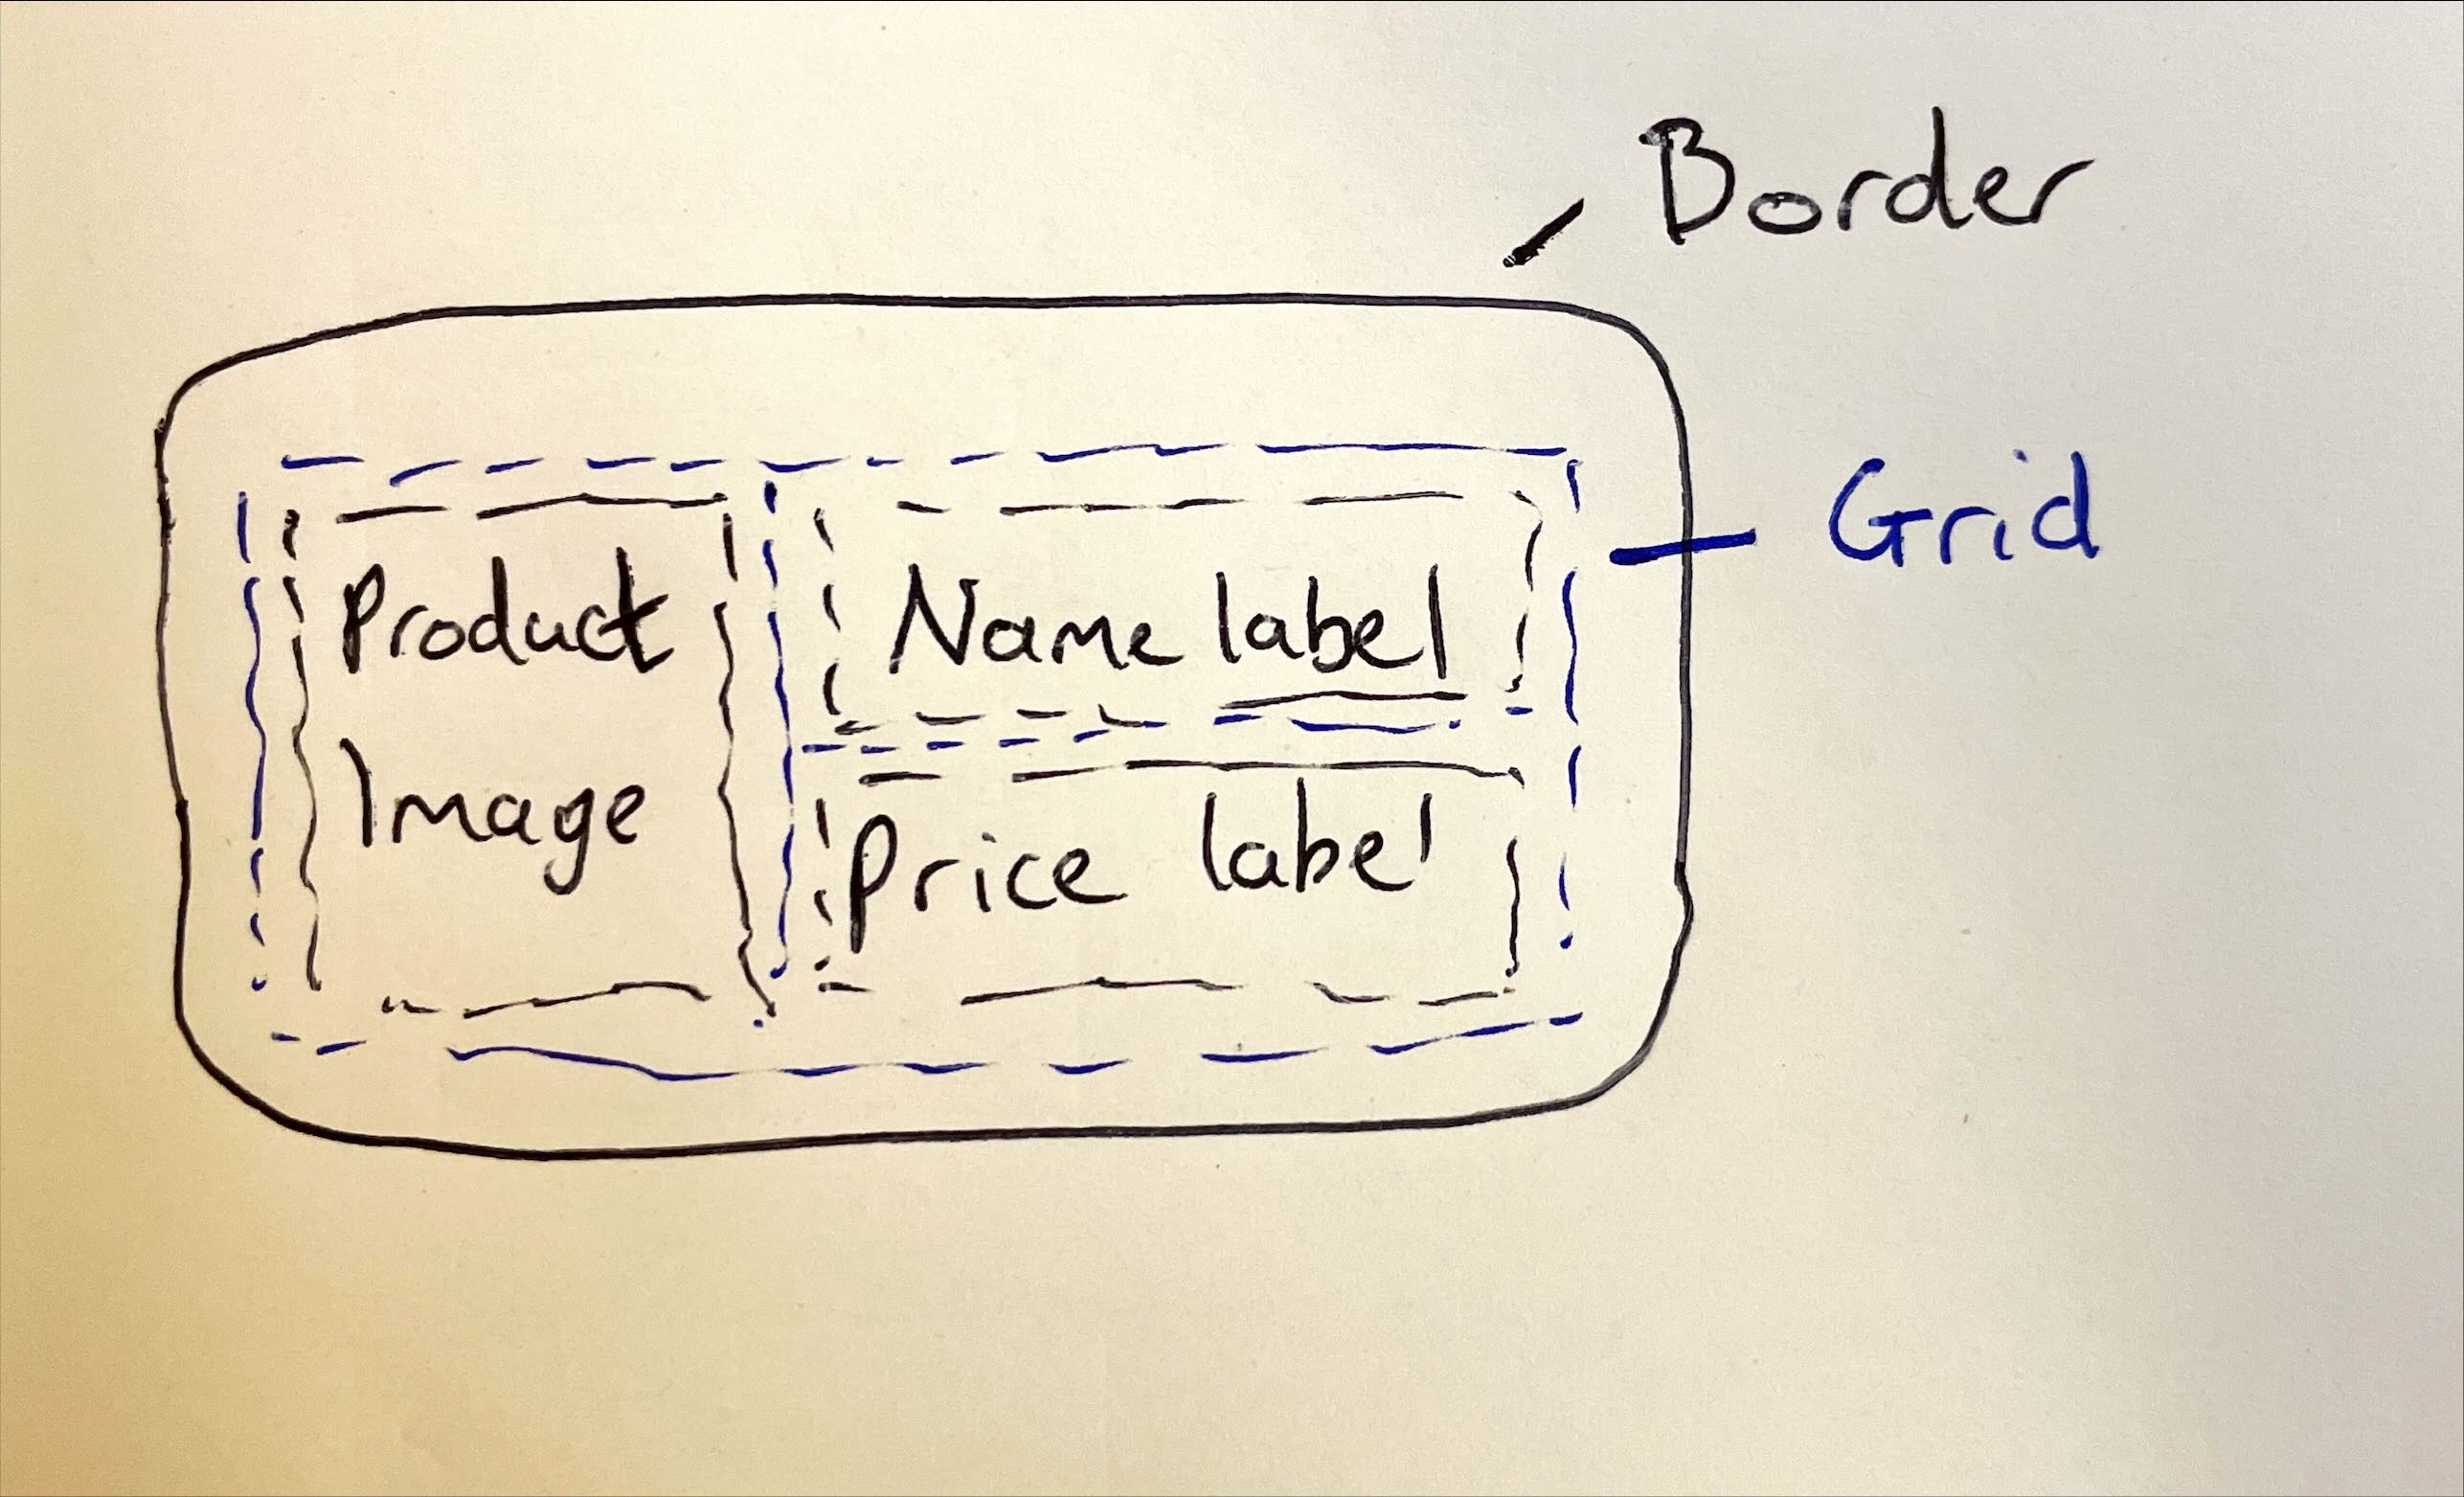 Border
Grid
Product
Image
Name label
Price label